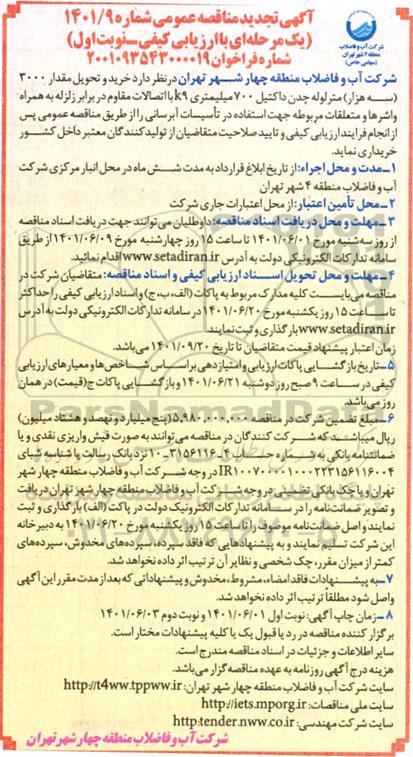 آگهی تجدید مناقصه عمومی شماره ۱۴۰۱/۹
(یک مرحله‌ای با ارزیابی کیفی - نوبت اول)
شماره فراخوان ۲۰۰۱۰۹۳۵۴۳۰۰۰۰۱۹
شرکت آب و فاضلاب
منطقه ۴ شهر تهران
(سهامی خاص)
شرکت آب و فاضلاب منطقه چهار شهر تهران در نظر دارد خرید و تحویل مقدار ۳۰۰۰
(سه هزار) متر لوله چدن داکتیل ۷۰۰ میلیمتری k۹ با اتصالات مقاوم در برابر زلزله به همراه
واشرها و متعلقات مربوطه جهت استفاده در تأسیسات آبرسانی را از طریق مناقصه عمومی پس
از انجام فرایند ارزیابی کیفی و تایید صلاحیت متقاضیان از تولیدکنندگان معتبر داخل کشور
خریداری نماید.
۱-مدت و محل اجراء: از تاریخ ابلاغ قرارداد به مدت شش ماه در محل انبار مرکزی شرکت
آب و فاضلاب منطقه ۴ شهر تهران
۲-محل تأمین اعتبار: از محل اعتبارات جاری شرکت
۳-مهلت و محل دریافت اسناد مناقصه: داوطلبان می‌توانند جهت دریافت اسناد مناقصه
از روز سه‌شنبه مورخ ۱۴۰۱/۰۶/۰۱ تا ساعت ۱۵ روز چهارشنبه مورخ ۱۴۰۱/۰۶/۰۹ از طریق
سامانه تدارکات الکترونیکی دولت به آدرس www.setadiran.ir اقدام نمائید.
۴-مهلت و محل تحویل اسناد ارزیابی کیفی و اسناد مناقصه: متقاضیان شرکت در
مناقصه می‌بایست کلیه مدارک مربوط به پاکات (الف،ب،ج) و اسناد ارزیابی کیفی را حداکثر
تا ساعت ۱۵ روز یکشنبه مورخ ۱۴۰۱/۰۶/۲۰ در سامانه تدارکات الکترونیکی دولت به آدرس
www.setadiran.ir بارگذاری و ثبت نمایند.
زمان اعتبار پیشنهاد قیمت متقاضیان تا تاریخ ۱۴۰۱/۰۹/۲۰ می‌باشد.
۵-تاریخ بازگشایی پاکات ارزیابی و امتیازدهی براساس شاخص‌ها و معیارهای ارزیابی
کیفی در ساعت ۹ صبح روز دوشنبه ۱۴۰۱/۰۶/۲۱ و بازگشایی پاکات ج (قیمت) در همان
روز می‌باشد.
۶-مبلغ تضمین شرکت در مناقصه ۵,۹۸۰,۰۰۰,۰۰۰ (پنج میلیارد و نهصد و هشتاد میلیون)
ریال میباشد که شرکت کنندگان در مناقصه می‌توانند به صورت فیش واریزی نقدی و یا
ضمانتنامه بانکی به شماره حساب ۴-۳۱۵۶۱۱۶-۱۰ نزد بانک رسالت یا شناسه شبای
IR۱۰۰۷۰۰۰۰۱۰۰۰۲۲۳۱۵۶۱۱۶۰۰۴ در وجه شرکت آب و فاضلاب منطقه چهار شهر
تهران و یا چک بانکی تضمینی در وجه شرکت آب و فاضلاب منطقه چهار شهر تهران دریافت
و تصویر ضمانت‌نامه را در سامانه تدارکات الکترونیک دولت در پاکت (الف) بارگذاری و ثبت
نمایند و اصل ضمانت‌نامه موصوف را تا ساعت ۱۵ روز یکشنبه مورخ ۱۴۰۱/۰۶/۲۰ به دبیرخانه
این شرکت تسلیم نمایند و به پیشنهادهایی که فاقد سپرده، سپرده‌های مخدوش، سپرده‌های
کمتر از میزان مقرر، چک شخصی و نظایر آن ترتیب اثر داده نخواهد شد.
۷-به پیشنهادات فاقد امضاء، مشروط، مخدوش و پیشنهاداتی که بعد از مدت مقرر این آگهی
واصل شود مطلقاً ترتیب اثر داده نخواهد شد.
۸-زمان چاپ آگهی: نوبت اول ۱۴۰۱/۰۶/۰۱ و نوبت دوم ۱۴۰۱/۰۶/۰۳
برگزار کننده مناقصه در رد یا قبول یک یا کلیه پیشنهادات مختار است.
سایر اطلاعات و جزئیات در اسناد مناقصه مندرج است.
هزینه درج آگهی روزنامه به عهده مناقصه گزار می‌باشد.
سایت شرکت آب و فاضلاب منطقه چهار شهر تهران: http://t4ww.tppww.ir
سایت ملی مناقصات: http://iets.mporg.ir
سایت شرکت مهندسی: http:tender.nww.co.ir
شرکت آب و فاضلاب منطقه چهار شهر تهران